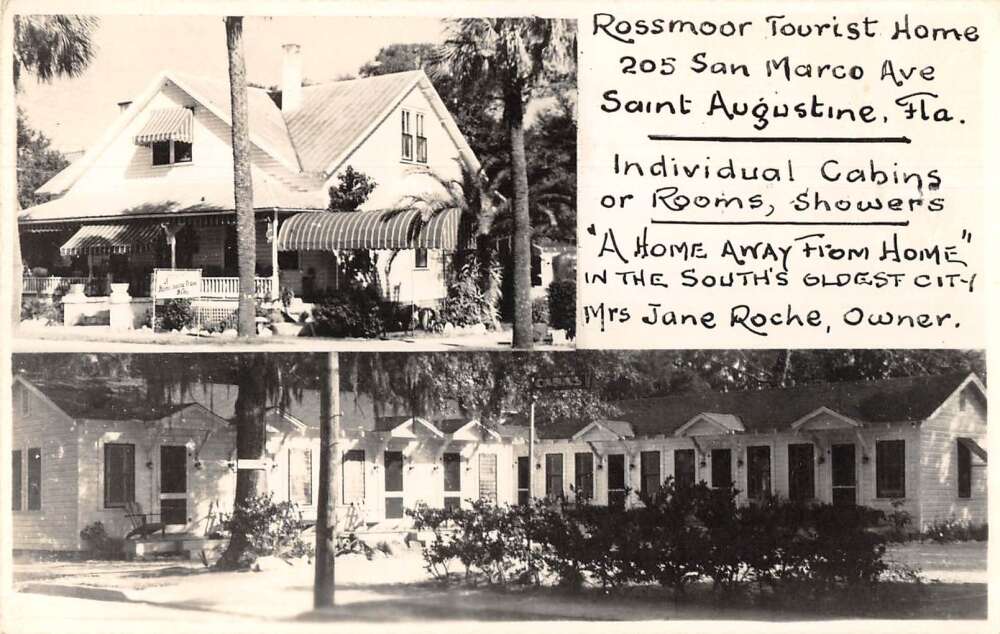 Rossmoor Tourist Home
205 San Marco Ave
Saint Augustine, Fla.
Individual Cabins
or Rooms, Showers
"A HOME AWAY FROM HOME"
IN THE SOUTH'S OLDEST CITY
Mrs Jane Roche, Owner.
CABINS